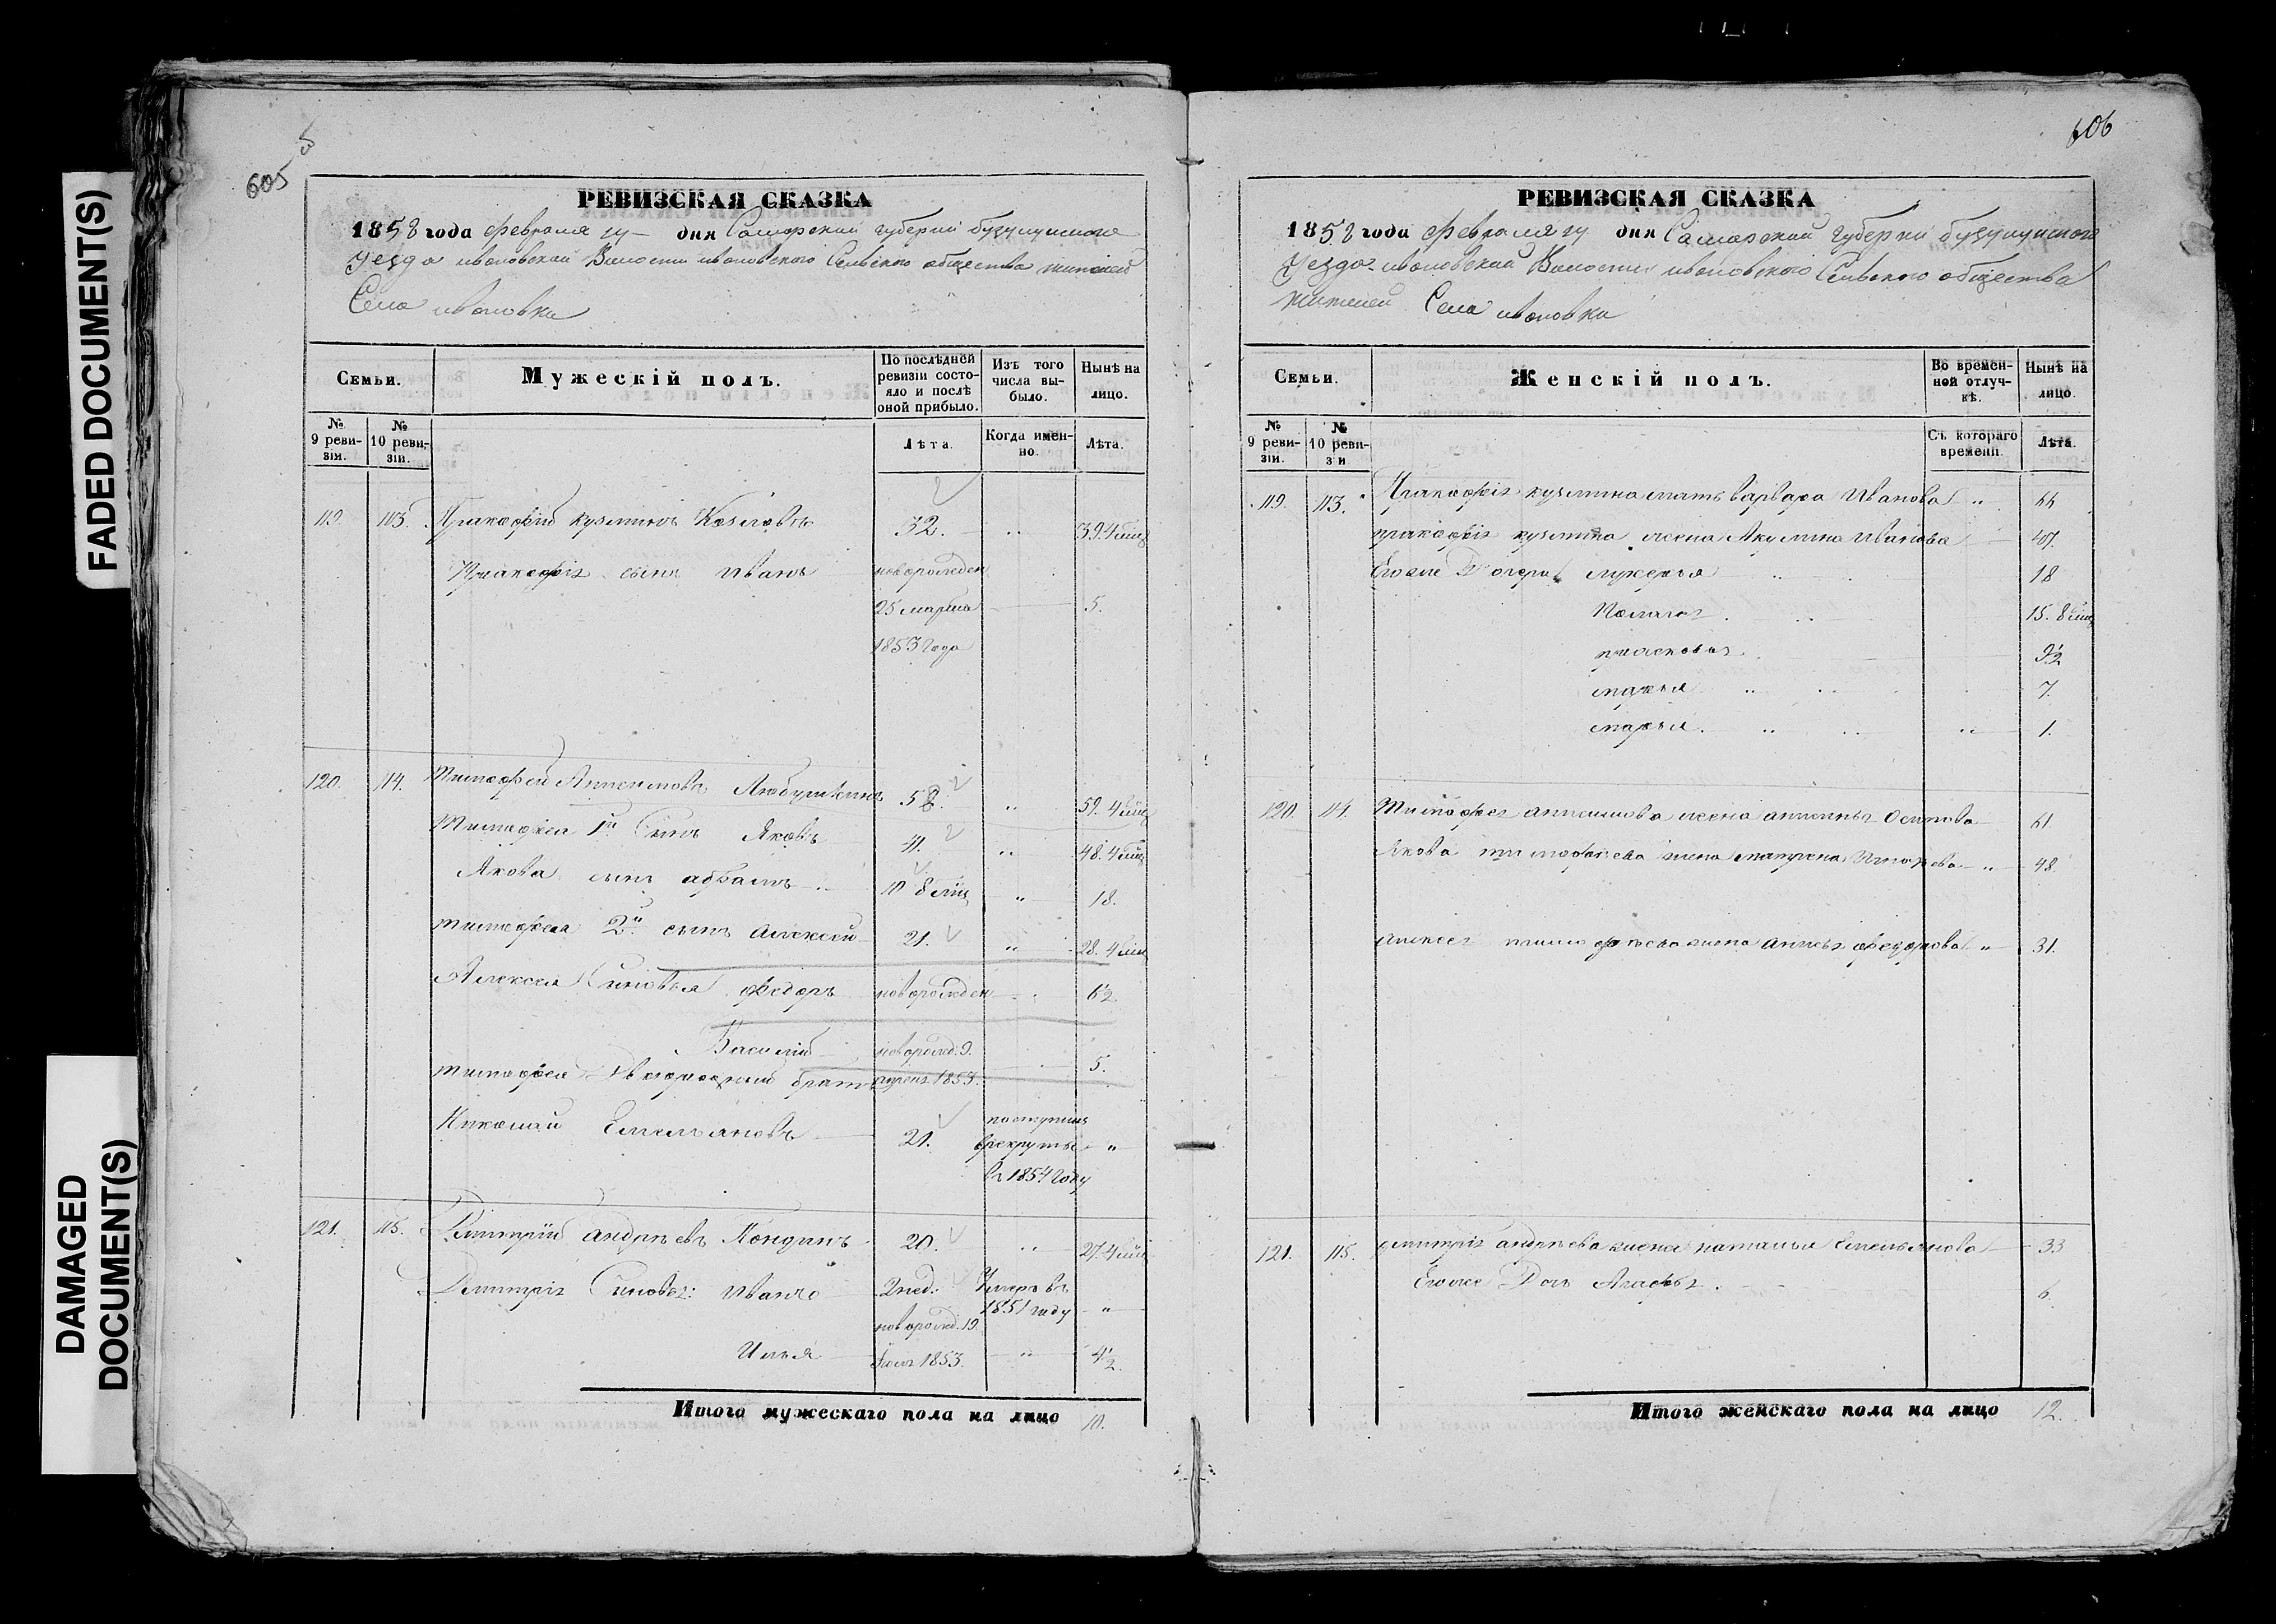 FADED DOCUMENT(S)
DAMAGED
DOCUMENT(S)
605
РЕВИЗСКАЯ СКАЗКА
1858 года февраля дня Самарской губернии бузулукского
уезда ивановской Волости ивановского Сельского общества жителей
Села ивановки
Семьи.
Мужескій полъ.
По послѣдней
ревизіи состо-
яло и послѣ
оной прибыло.
Изъ того
числа вы-
было.
Нынѣ на
лицо.
№
9 реви-
зіи.
№
10 реви-
зіи.
Лѣта.
Когда имен-
но.
Лѣта.
119. 113. Пракофій кузминъ Козловъ 32. 39. 4 мѣц
Пракофія сынъ иванъ новорожден
25 марта 5.
1853 года
120. 114. Тимофей Анисимовъ 58. 59. 4 мѣц
Тимофея 1й Сынъ Яковъ 41. 48. 4 мѣц
Якова сынъ абрамъ 10 8 мѣц 18.
тимофея 2й сынъ Алексей 21. 28. 4 мѣц
Алексея Сыновья федоръ новорожден 6 1/2
Василій новорожд. 9. 5.
тимофея двоюродный братъ апреля 1853.
Николай Емельяновъ 21. поступилъ
врекруты "
въ 1854 году
121. 115. Дмитрій андреевъ Кондинъ 20. 27. 4 мѣц
Дмитрія Сыновья: иванъ 2 нед. Умеръ въ
1851 году "
новорожд. 19.
Илья 1853. 4 1/2
Итого мужескаго пола на лицо 10.
606
РЕВИЗСКАЯ СКАЗКА
1858 года февраля дня Самарской губерніи бузулукского
Уезда ивановской Волости ивановского Сельского общества
жителей Села ивановки
Семьи.
Женскій полъ.
Во времен-
ной отлуч-
кѣ.
Нынѣ на
лицо.
№
9 реви-
зіи.
№
10 реви-
зіи
Съ котораго
времени.
Лѣта.
119. 113. Пракофія кузмина мать варвара иванова " 64
пракофія кузмина жена Акулина иванова 40.
Его же Дочери лукерья 18
Пелагея 15. 8 мѣц
прасковья 9 1/2
марья 7.
марья. 1.
120. 114. Тимофея анисимова жена Осипова 61
Якова тимофеева жена матрена " 48.
алексея тимофеева жена федорова " 31.
121. 115. дмитрія андреева жена наталья Емельянова 33
Его же Дочь Агафья 6.
Итого женскаго пола на лицо 12.